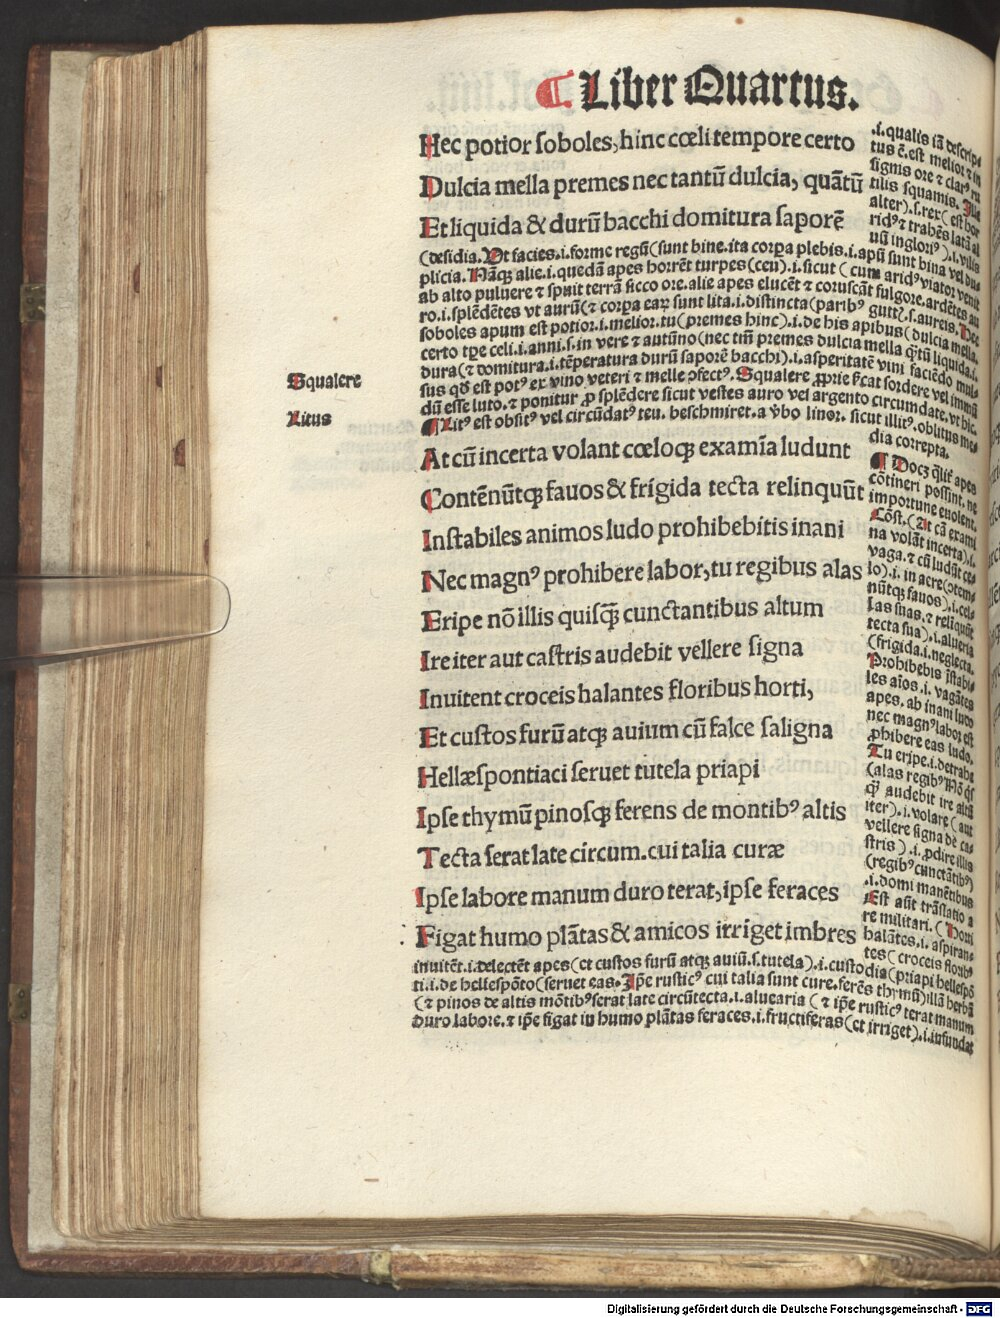 ¶ Liber Quartus.
Hec potior soboles, hinc cœli tempore certo
Dulcia mella premes nec tantū dulcia, quātū
Et liquida & durū bacchi domitura saporē
.i. qualis iā descrip
tus ē. est melior ⁊ in
signis ore ⁊ clarꝰ ru
tilis squamis. Ille
alter). s. rex (est hor
ridꝰ ⁊ trahēs latā al
uū inglorius). i. vilis
(desidia. Ut facies .i. forme regū (sunt bine. ita corpa plebis .i. apū sunt bina vel du
plicia. Nāqꝫ alie .i. quedā apes horrēt turpes (ceu) .i. sicut (cum aridꝰ viator venit
ab alto puluere ⁊ spuit terrā sicco ore. alie apes elucēt ⁊ coruscāt fulgore. ardētes au
ro .i. splēdētes vt aurū (⁊ corpa earꝝ sunt lita .i. distincta (paribꝰ guttꝭ .s. aureis. Hec
soboles apum est potior .i. melior. tu (premes hinc) .i. de his apibus (dulcia mella.
certo tꝑe celi .i. anni .s. in vere ⁊ autūno (nec tm̄ premes dulcia mella q̄tū liquida .i.
dura (⁊ domitura .i. tēperatura durū saporē bacchi) .i. asperitatē vini faciēdo mul
sus qd̄ est potꝰ ex vino veteri ⁊ melle ꝯfectꝰ. Squalere ꝓprie fīcat sordere vel immū
dū esse luto. ⁊ ponitur ꝓ splēdere sicut vestes auro vel argento circumdate. vt hic.
¶ Litꝰ est obsitꝰ vel circūdatꝰ teu. beschmiret. a v̄bo linor. sicut illitꝰ. oblitus me
dia correpta.
Squalere
Litus
At cū incerta volant cœloqꝫ examīa ludunt
Contēnūtqꝫ fauos & frigida tecta relinquūt
Instabiles animos ludo prohibebitis inani
Nec magnꝰ prohibere labor, tu regibus alas
Eripe nō illis quisqꝫ̄ cunctantibus altum
Ire iter aut castris audebit vellere signa
Inuitent croceis halantes floribus horti,
Et custos furū atqꝫ auium cū falce saligna
Hellæspontiaci seruet tutela priapi
Ipse thymū pinosqꝫ ferens de montibꝰ altis
Tecta serat late circum. cui talia curæ
Ipse labore manum duro terat, ipse feraces
Figat humo plātas & amicos irriget imbres
¶ Docꝫ q̄lit̄ apes
cōtineri possint. ne
importune euolent.
Cōst. (At cū exami
na volāt incerta) .i.
vaga. ⁊ cū ludūt ce
lo) .i. in aere (ꝯtem
nūtqꝫ fauos) .i. cel
las suas. ⁊ reliquūt
tecta sua) .i. aluería
(frigida .i. neglecta.
Prohibebis īstabi
les aīos .i. vagātes
apes. ab inani ludo
nec magnꝰ labor est
ꝓhibere eas ludo.
Tu eripe .i. detrahe
(alas regibꝰ Nō q̄s
q̄ꝫ audebit ire altū
iter) .i. volare (aut
vellere signa de ca
stris) .i. ꝓdire illis
(regibꝰ cunctātibꝰ)
.i. domi manētibus
Est aūt trāslatio a
re militari. (Horti
halātes .i. aspiran
tes (croceis floribꝰ
inuitēt .i. delectēt apes (et custos furū atqꝫ auiū .s. tutela) .i. custodia (priapi hellespō
ti .i. de hellespōto (seruet eas. Ipē rusticꝰ cui talia sunt cure. ferēs thymū) illā herbā
(⁊ pinos de altis mōtibꝰ serat late circū tecta .i. aluearia (⁊ ipē rusticꝰ terat manum
duro labore. ⁊ ipē figat in humo plātas feraces .i. fructiferas (et irriget) .i. infundat
Digitalisierung gefördert durch die Deutsche Forschungsgemeinschaft - DFG